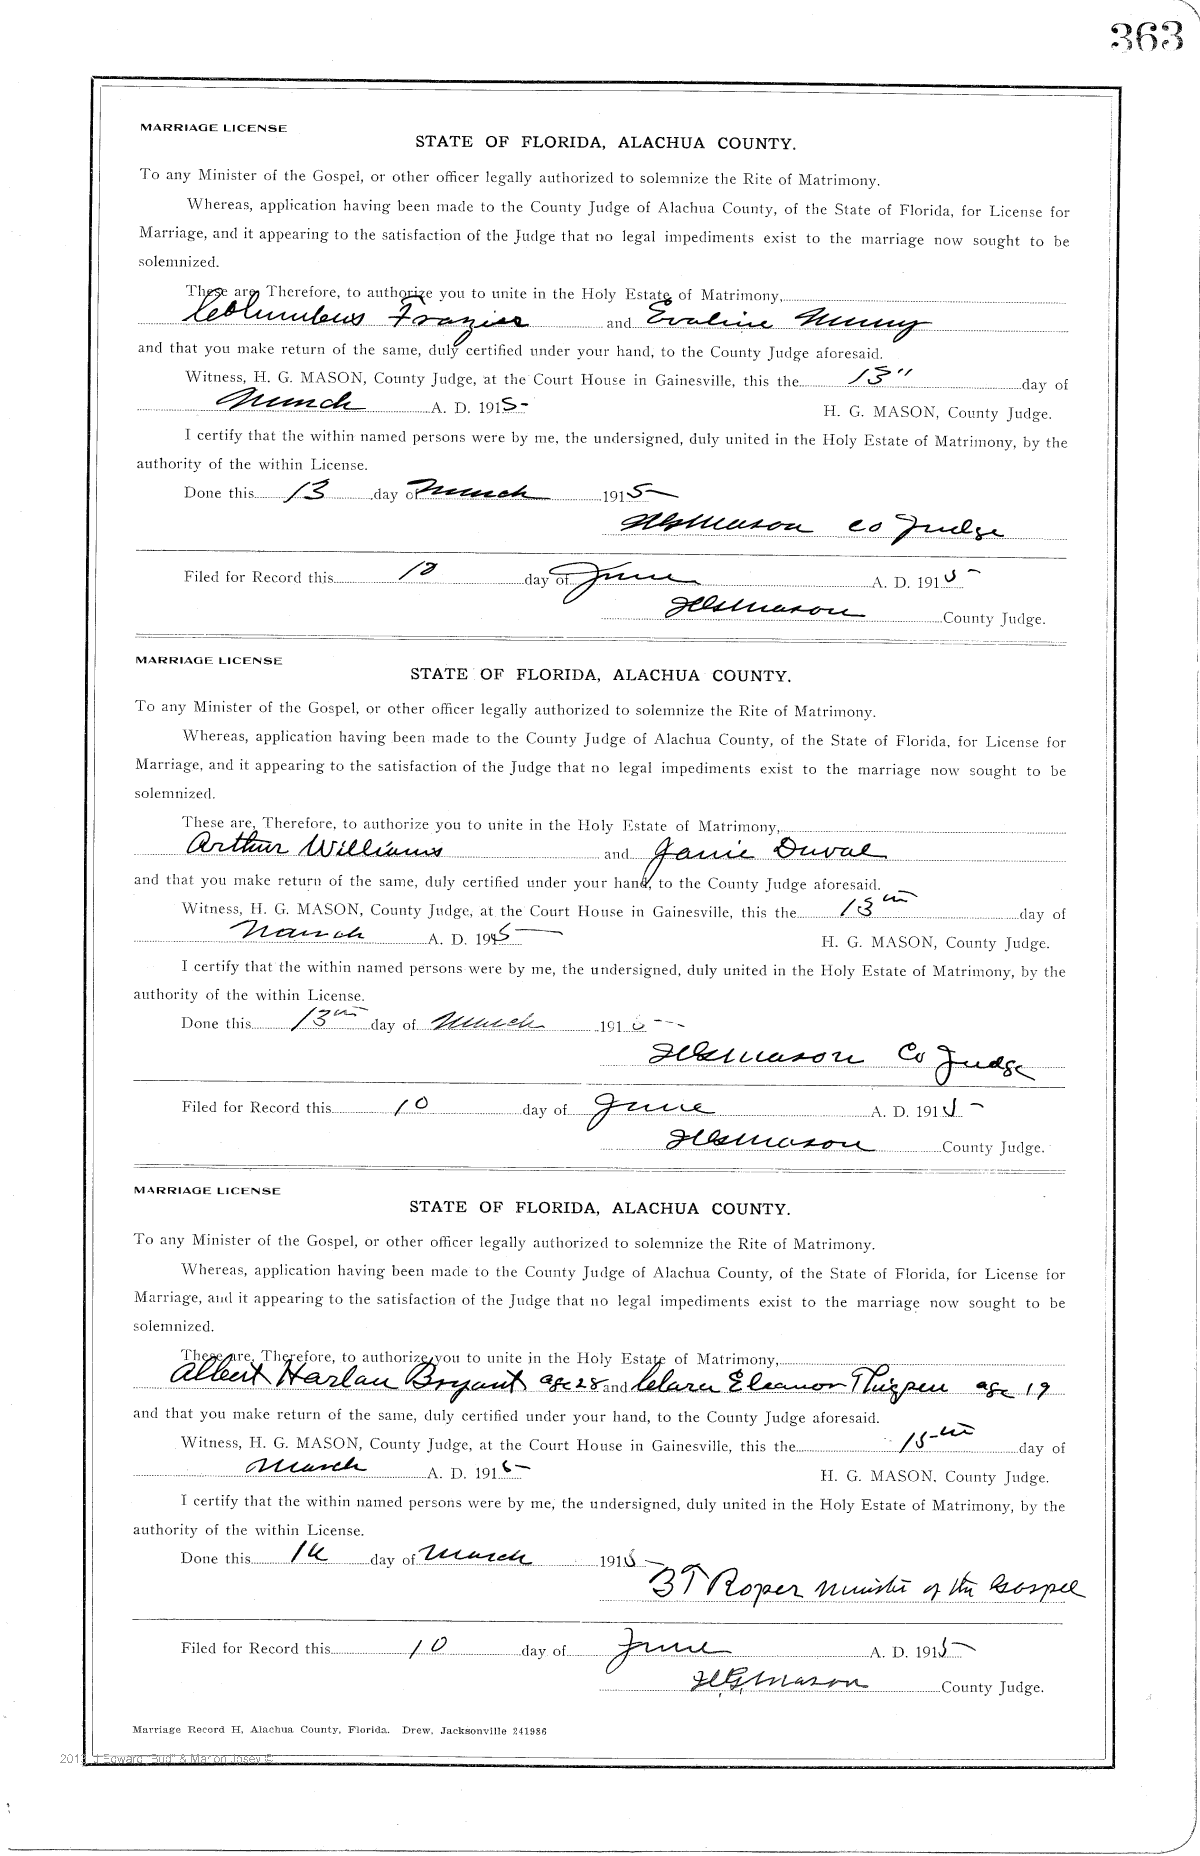 363
MARRIAGE LICENSE
STATE OF FLORIDA, ALACHUA COUNTY.
To any Minister of the Gospel, or other officer legally authorized to solemnize the Rite of Matrimony.
Whereas, application having been made to the County Judge of Alachua County, of the State of Florida, for License for
Marriage, and it appearing to the satisfaction of the Judge that no legal impediments exist to the marriage now sought to be
solemnized.
These are, Therefore, to authorize you to unite in the Holy Estate of Matrimony,
Columbus Frazier and Evaline
and that you make return of the same, duly certified under your hand, to the County Judge aforesaid.
Witness, H. G. MASON, County Judge, at the Court House in Gainesville, this the 13" day of
March A. D. 1915- H. G. MASON, County Judge.
I certify that the within named persons were by me, the undersigned, duly united in the Holy Estate of Matrimony, by the
authority of the within License.
Done this 13 day of March 1915-
HGMason Co Judge
Filed for Record this 10 day of June A. D. 1915-
HGMason County Judge.
MARRIAGE LICENSE
STATE OF FLORIDA, ALACHUA COUNTY.
To any Minister of the Gospel, or other officer legally authorized to solemnize the Rite of Matrimony.
Whereas, application having been made to the County Judge of Alachua County, of the State of Florida, for License for
Marriage, and it appearing to the satisfaction of the Judge that no legal impediments exist to the marriage now sought to be
solemnized.
These are, Therefore, to authorize you to unite in the Holy Estate of Matrimony,
Arthur Williams and Janie Duval
and that you make return of the same, duly certified under your hand, to the County Judge aforesaid.
Witness, H. G. MASON, County Judge, at the Court House in Gainesville, this the 13th day of
March A. D. 1915- H. G. MASON, County Judge.
I certify that the within named persons were by me, the undersigned, duly united in the Holy Estate of Matrimony, by the
authority of the within License.
Done this 13th day of March 1915-
HGMason Co Judge
Filed for Record this 10 day of June A. D. 1915-
HGMason County Judge.
MARRIAGE LICENSE
STATE OF FLORIDA, ALACHUA COUNTY.
To any Minister of the Gospel, or other officer legally authorized to solemnize the Rite of Matrimony.
Whereas, application having been made to the County Judge of Alachua County, of the State of Florida, for License for
Marriage, and it appearing to the satisfaction of the Judge that no legal impediments exist to the marriage now sought to be
solemnized.
These are, Therefore, to authorize you to unite in the Holy Estate of Matrimony,
Albert Harlan Bryant age 28 and Clara Eleanor Thigpen age 19
and that you make return of the same, duly certified under your hand, to the County Judge aforesaid.
Witness, H. G. MASON, County Judge, at the Court House in Gainesville, this the 15th day of
March A. D. 1915- H. G. MASON, County Judge.
I certify that the within named persons were by me, the undersigned, duly united in the Holy Estate of Matrimony, by the
authority of the within License.
Done this day of March 1915-
BT Roper Minister of the Gospel
Filed for Record this 10 day of June A. D. 1915-
HGMason County Judge.
Marriage Record H, Alachua County, Florida. Drew, Jacksonville 241986
J Edward "Bud" & Marion Josey ©